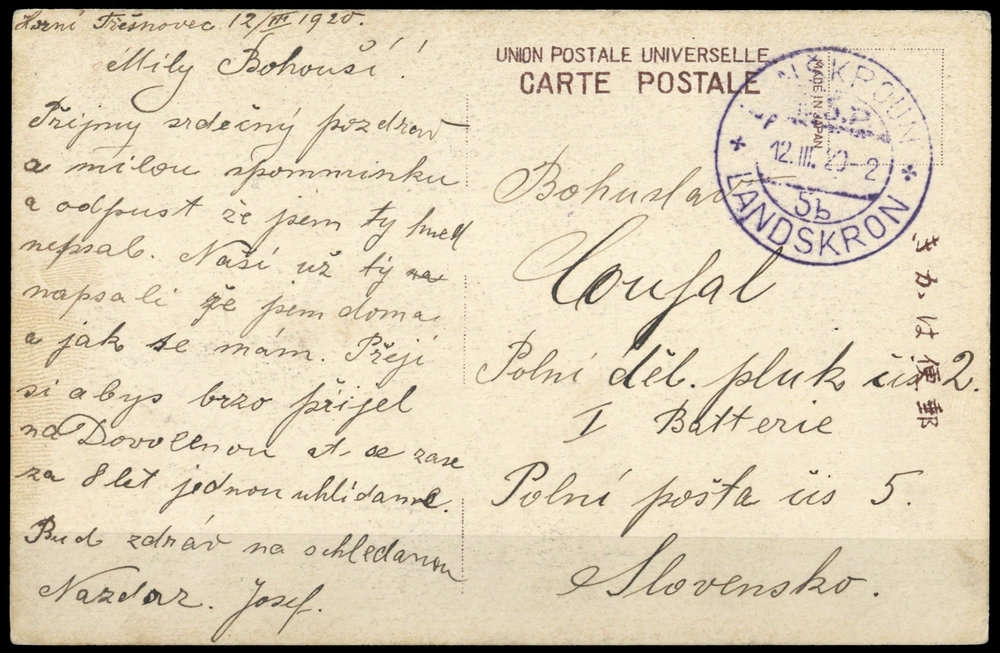 Horní Třešňovec 12/III 1920.
Milý Bohouší!
Přijmy srdečný pozdrav
a milou spomminku
a odpust že jsem ty hned
nepsal. Naší už tý na
napsali že jsem doma
a jak se mám. Přejí
si abys brzo přijel
na Dovolenou at se zase
za 8 let jednou uhlídame.
Bud zdráv na schledanou
Nazdar. Josef.
UNION POSTALE UNIVERSELLE
CARTE POSTALE
MADE IN JAPAN
LANŠKROUN
12.III.20-2
5b
LANDSKRON
Bohuslav
Coufal
Polní děl. pluk čís 2.
I Batterie
Polní pošta čís 5.
Slovensko.
郵便はかき